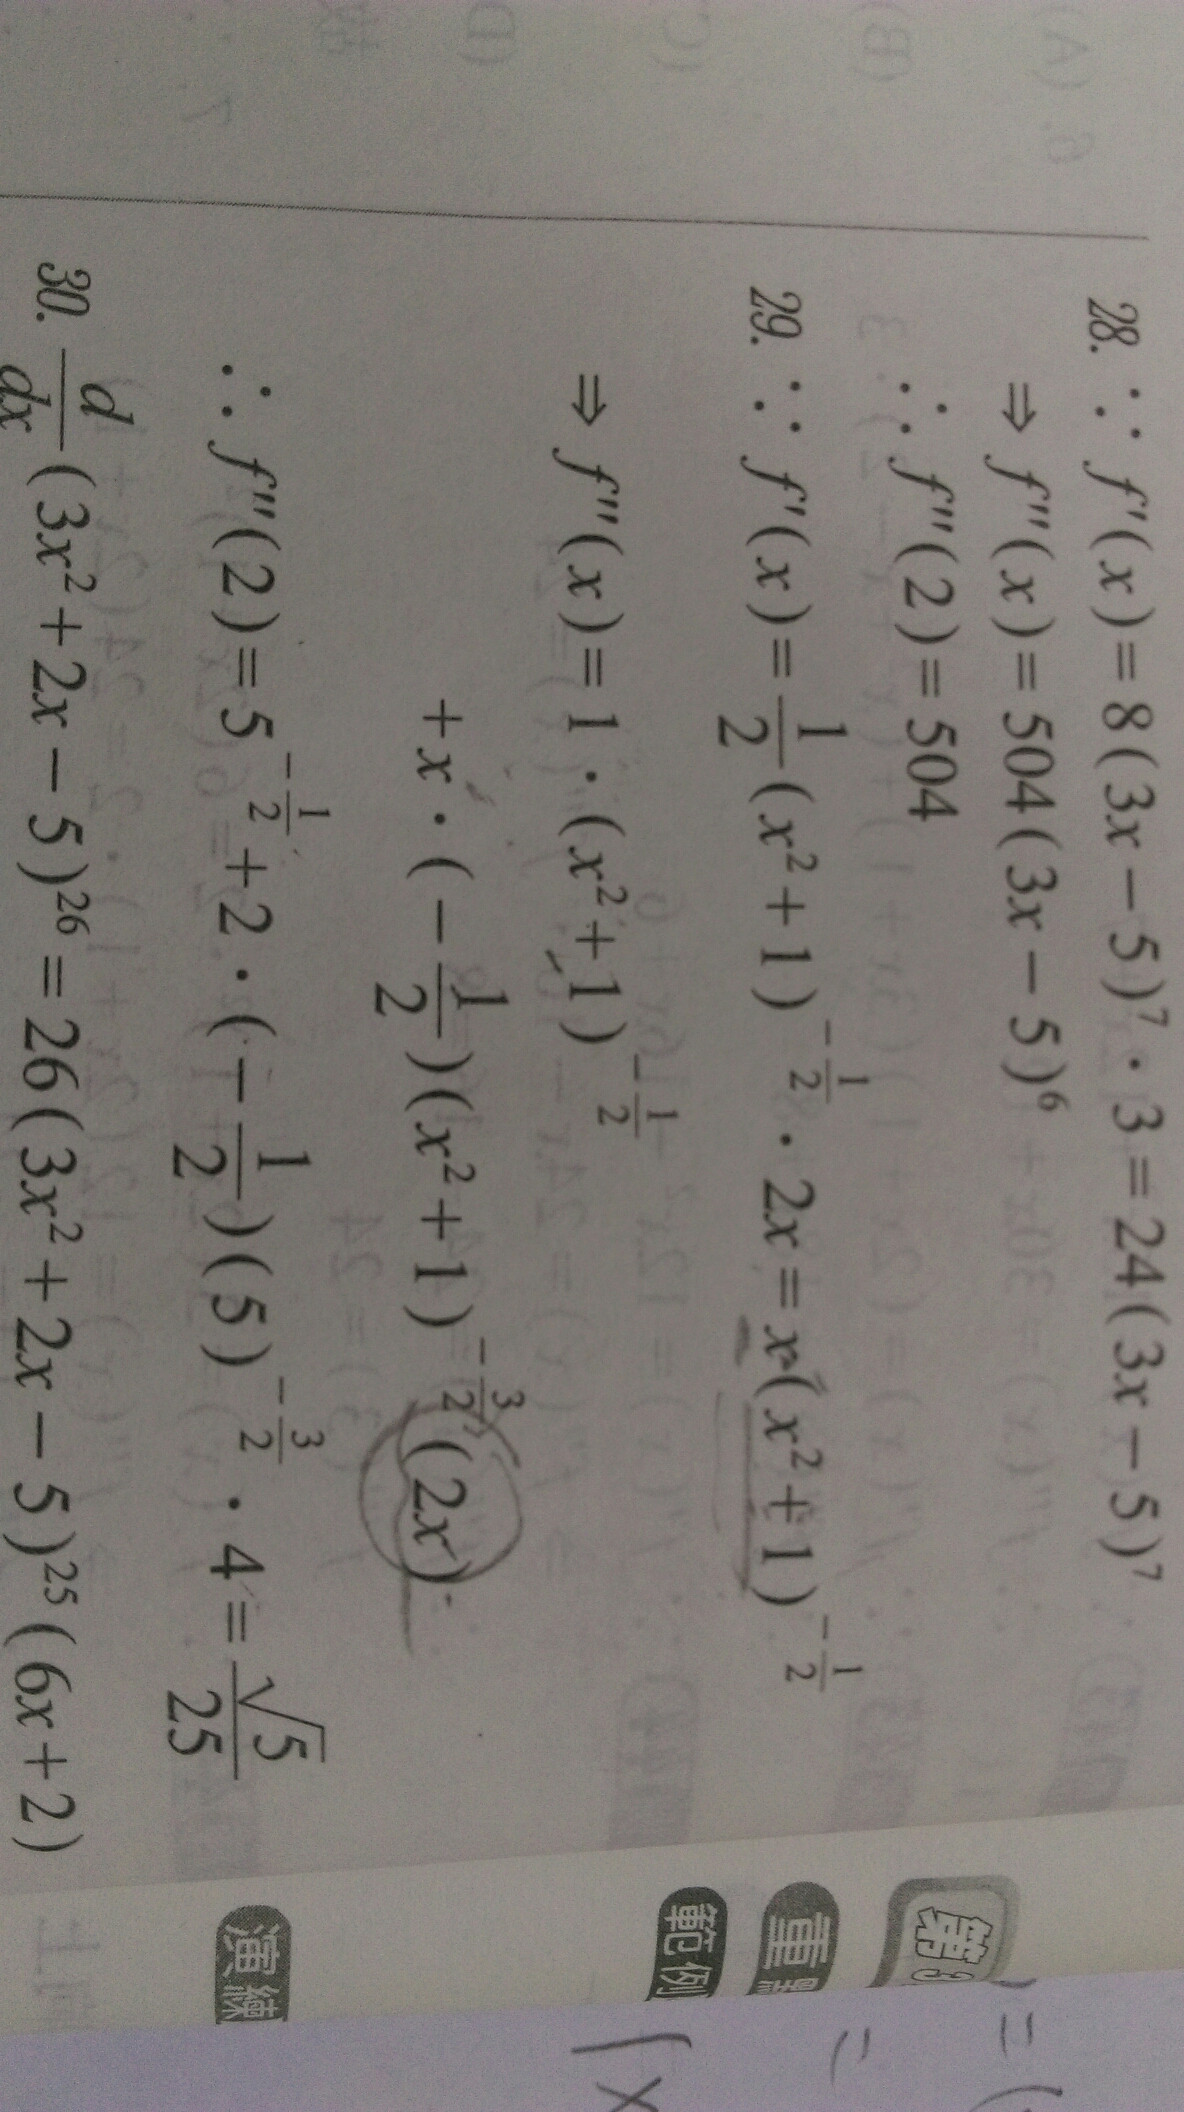 28. ∵ f'(x)=8(3x−5)⁷·3=24(3x−5)⁷
⇒ f''(x)=504(3x−5)⁶
∴ f''(2)=504
29. ∵ f'(x)=1/2(x²+1)^(-1/2)·2x=x(x²+1)^(-1/2)
⇒ f''(x)=1·(x²+1)^(-1/2)
+x·(−1/2)(x²+1)^(-3/2)(2x)
∴ f''(2)=5^(-1/2)+2·(−1/2)(5)^(-3/2)·4=√5/25
30. d/dx(3x²+2x−5)²⁶=26(3x²+2x−5)²⁵(6x+2)
第3
重點
範例
演練